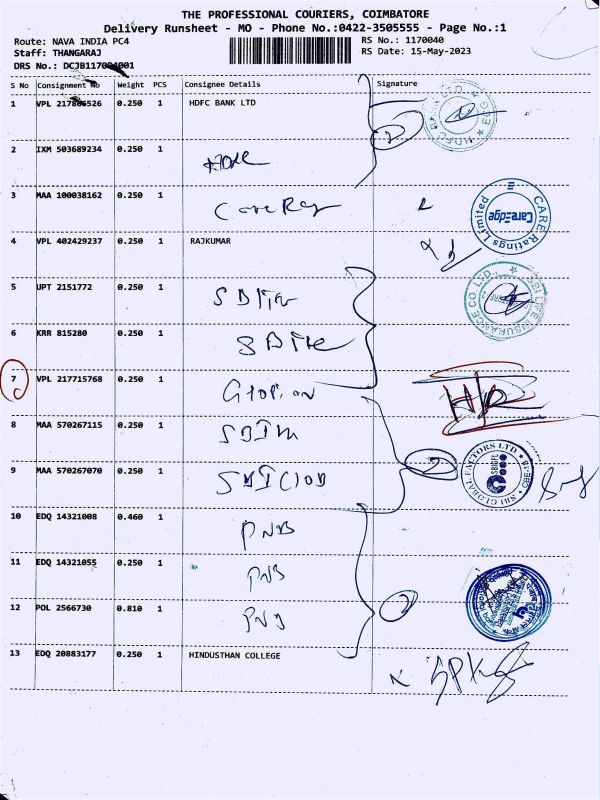 THE PROFESSIONAL COURIERS, COIMBATORE
Delivery Runsheet - MO - Phone No.:0422-3505555 - Page No.:1
Route: NAVA INDIA PC4 RS No.: 1170040
Staff: THANGARAJ RS Date: 15-May-2023
DRS No.: DCJB117004001
S No Consignment No Weight PCS Consignee Details Signature
1 VPL 217806526 0.250 1 HDFC BANK LTD
2 IXM 503689234 0.250 1
3 MAA 100038162 0.250 1
CARE Ratings Limited
CareEdge
4 VPL 402429237 0.250 1 RAJKUMAR
5 UPT 2151772 0.250 1
SBI LIFE INSURANCE CO LTD.,
6 KRR 815280 0.250 1
7 VPL 217715768 0.250 1
8 MAA 570267115 0.250 1
9 MAA 570267070 0.250 1
SBI GLOBAL FACTORS LTD
10 EDQ 14321008 0.460 1 PNB
11 EDQ 14321055 0.250 1 PNB
12 POL 2566730 0.810 1 PNB
13 EDQ 20883177 0.250 1 HINDUSTHAN COLLEGE